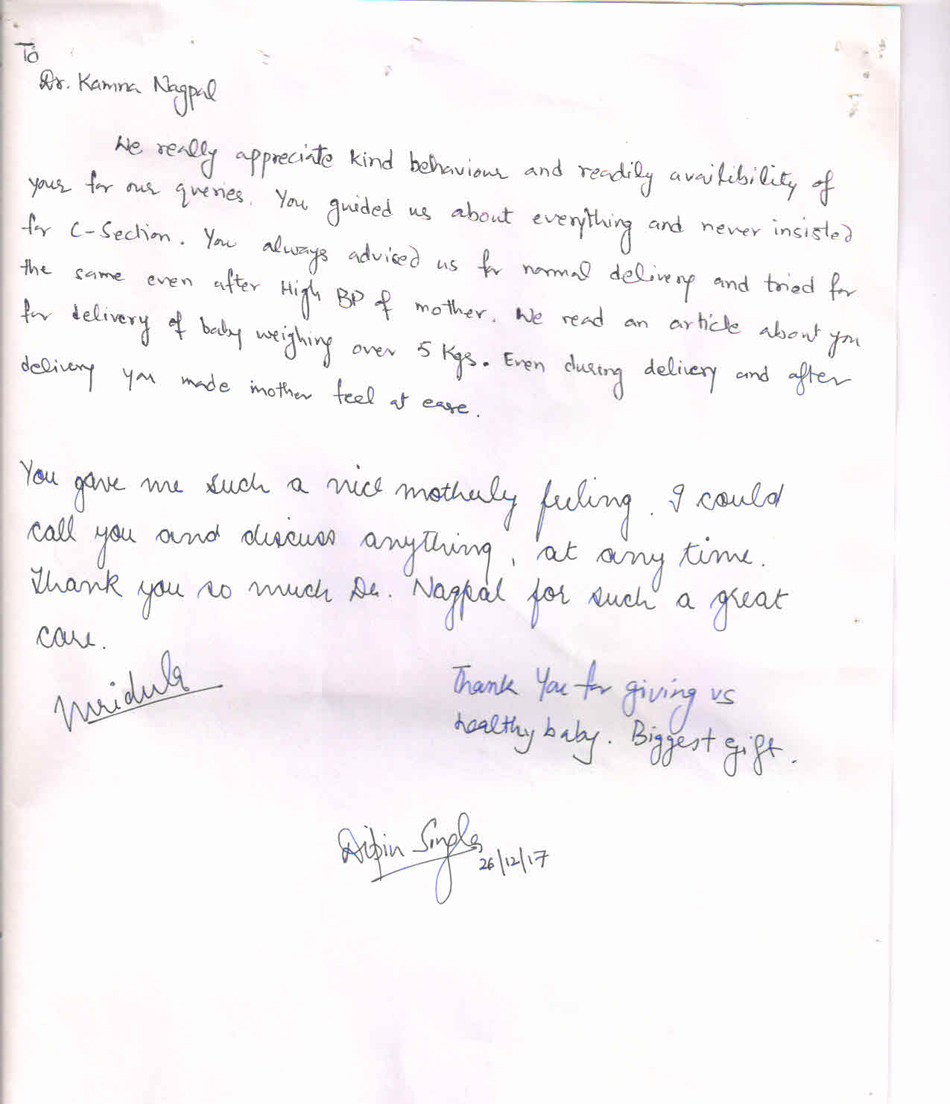 To
Dr. Kamna Nagpal
We really appreciate kind behaviour and readily availibility of
your for our queries. You guided us about everything and never insisted
for C-Section. You always advised us for normal delivery and tried for
the same even after High BP of mother. We read an article about you
for delivery of baby weighing over 5 Kgs. Even during delivery and after
delivery you made mother feel at ease.
You gave me such a nice motherly feeling. I could
call you and discuss anything, at any time.
Thank you so much Dr. Nagpal for such a great
care.
Mridula
Thank You for giving us
healthy baby. Biggest gift.
Dipin Singla
26/12/17